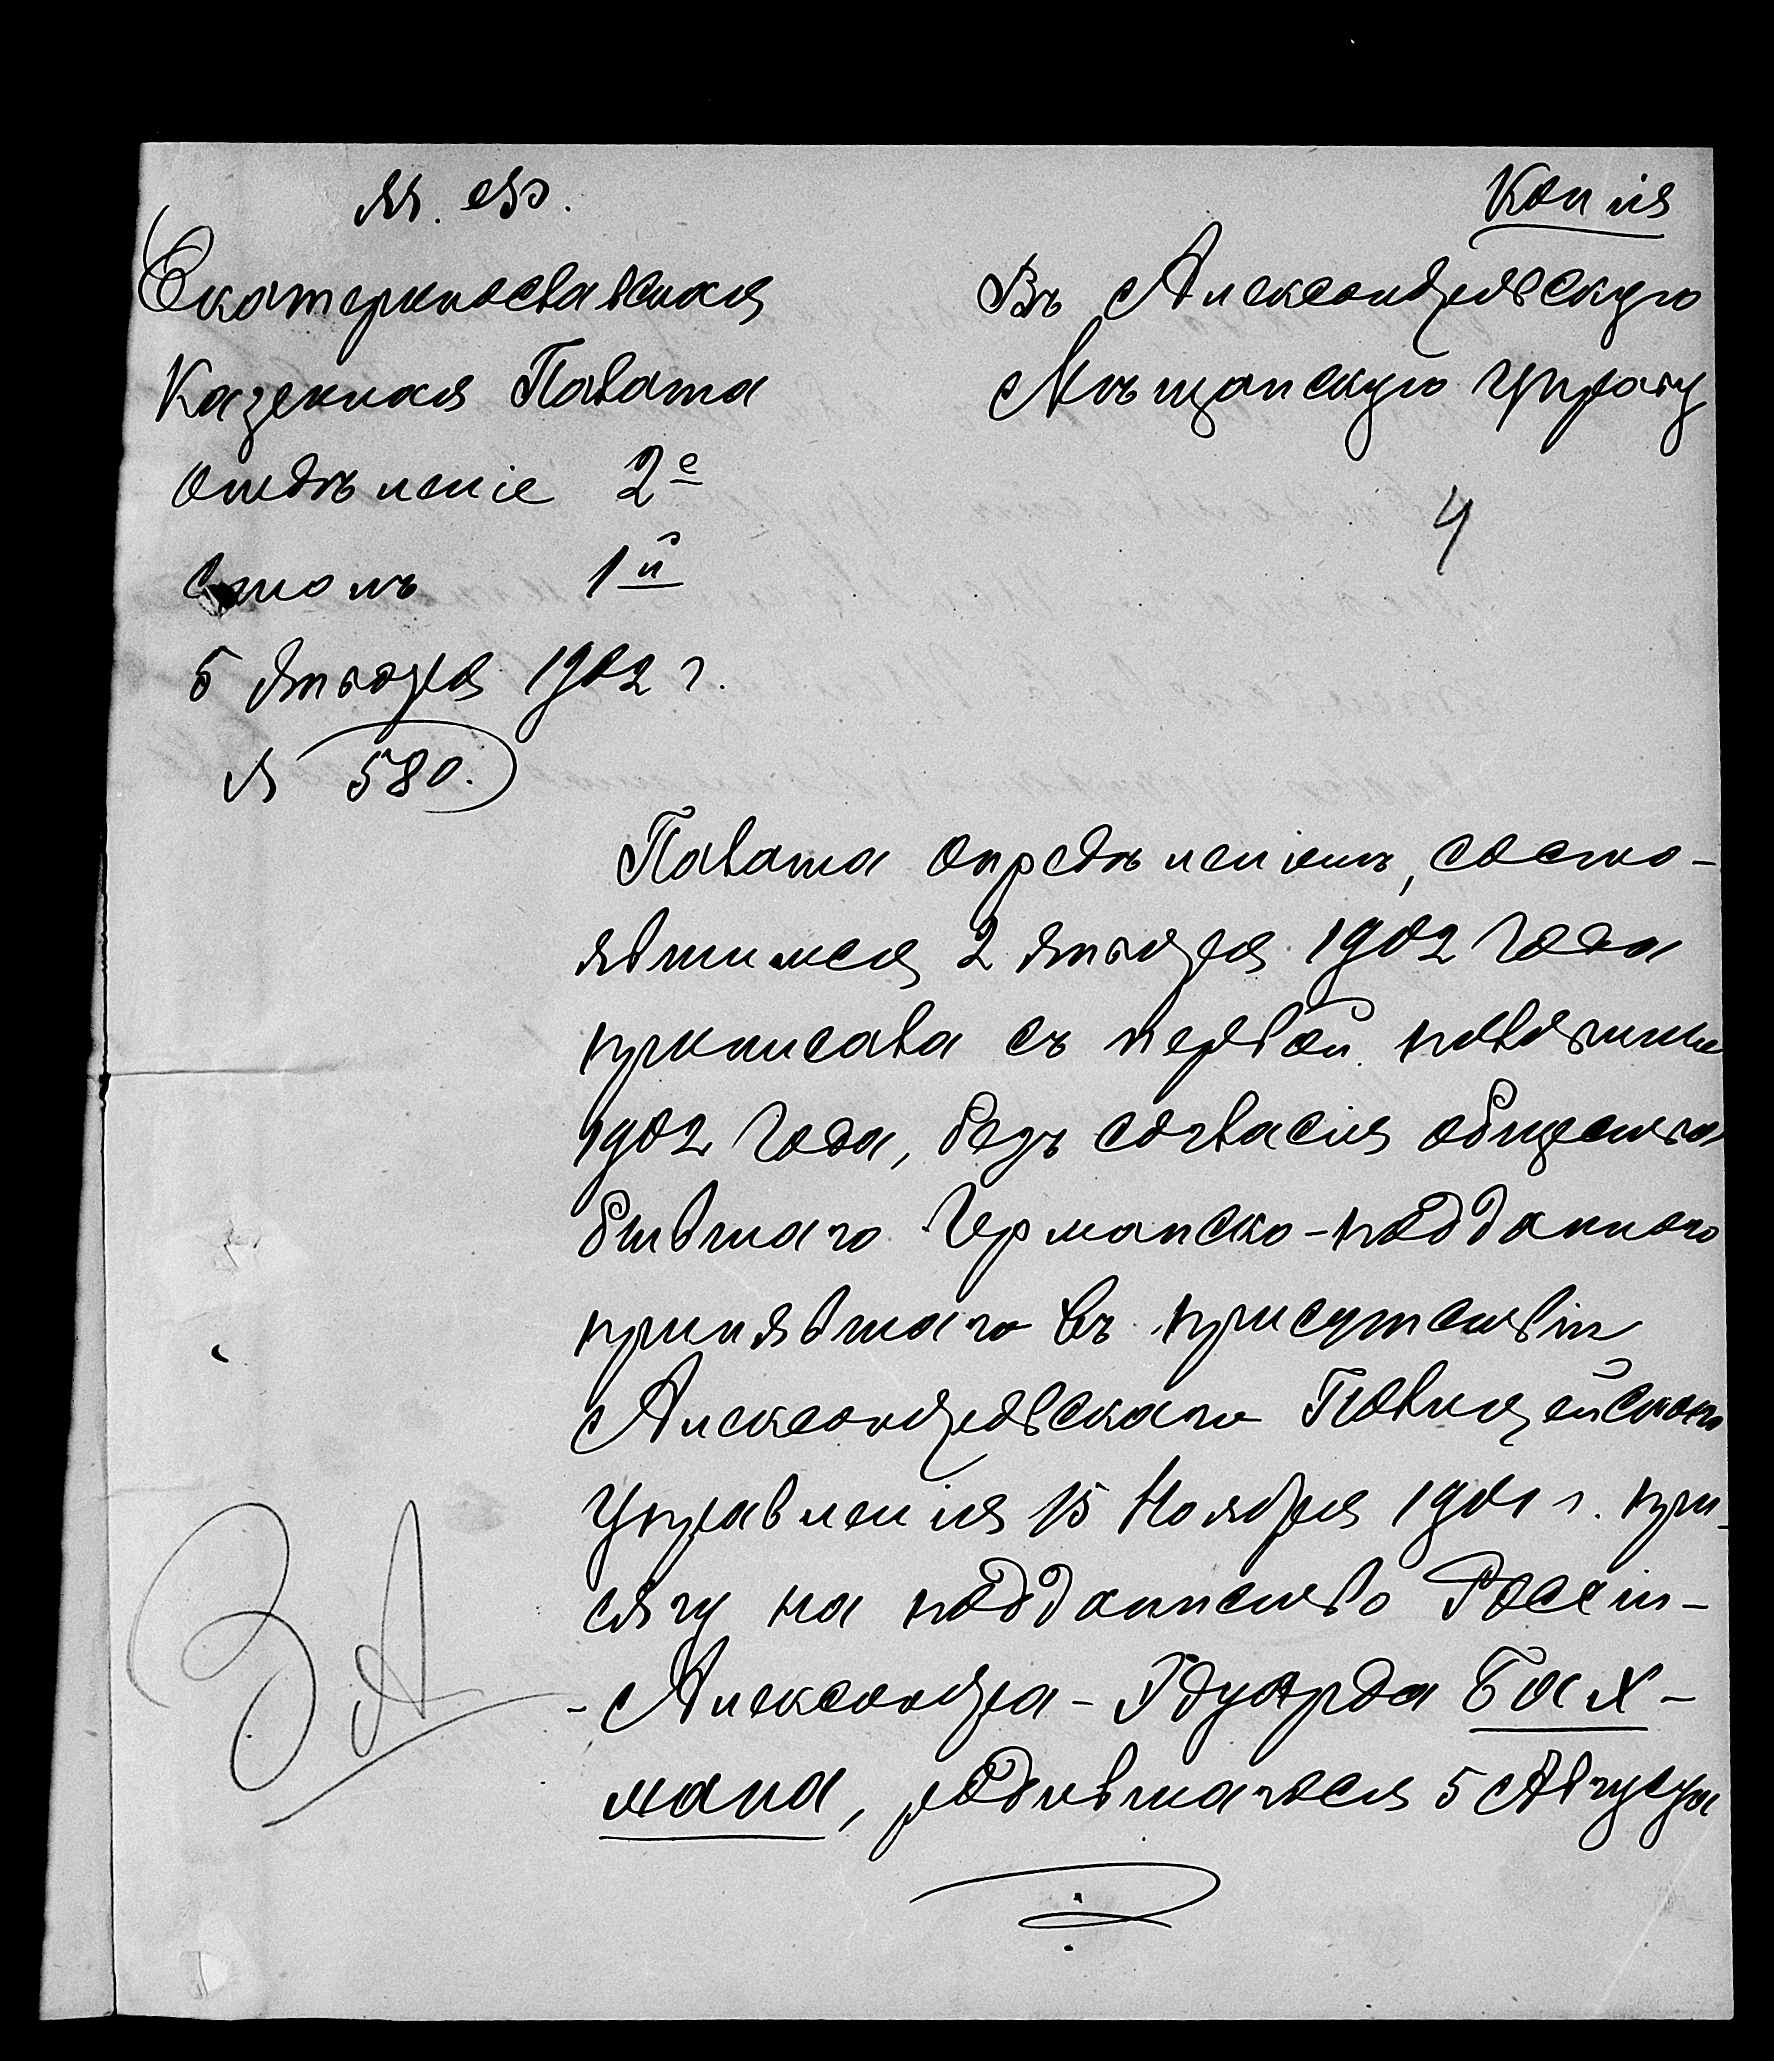 М. Ф.
Копія
Екатеринославская
Казенная Палата
Отдѣленіе 2е
Столъ 1й
5 Января 1902 г.
№ 580.
Въ Александровскую
Мѣщанскую Управу
4
Палата опредѣленіемъ, состо-
явшимся 2 Января 1902 года
приписала съ первой половины
1902 года, безъ согласія общества
бывшаго Германско-подданного
принявшаго въ присутствіи
Александровскаго Полицейскаго
Управленія 15 Ноября 1901 г. при-
сягу на подданнство Россіи-
-Александра-Эдуарда Бах-
мана, родившагося 5 Августа